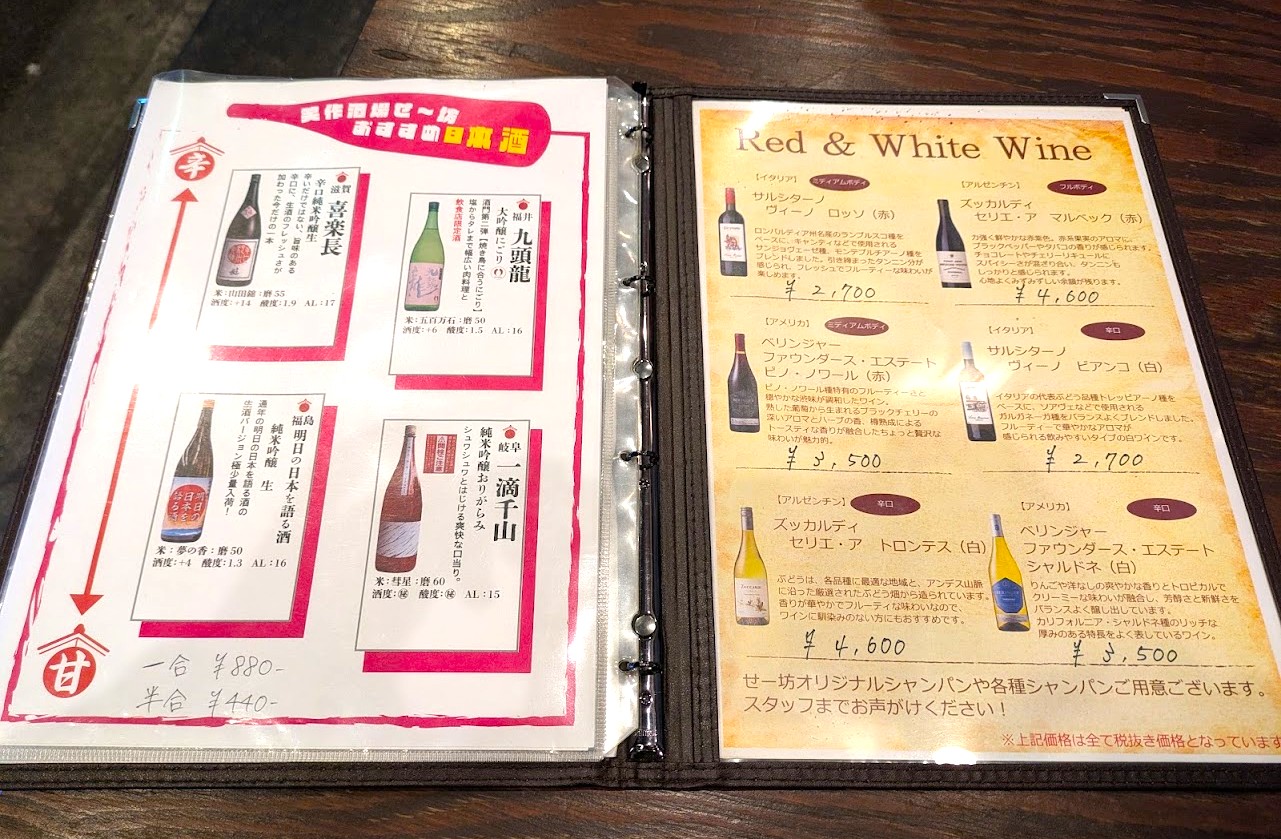 美作酒場ぜ～坊
おすすめ日本酒
辛
滋賀 喜楽長
辛口純米吟醸生
辛いだけではない、旨味のある
辛口に、生酒のフレッシュさが
加わった今だけの一本
米:山田錦:磨55
酒度:+14 酸度:1.9 AL:17
福井 九頭龍
大吟醸にごり
酒門第二弾【焼き鳥に合うにごり】
塩からタレまで幅広い肉料理と
飲食店限定酒
米:五百万石:磨50
酒度:+6 酸度:1.5 AL:16
福島 明日の日本を語る酒
純米吟醸 生
通年の明日の日本を語る酒の
生酒バージョン極少量入荷!
米:夢の香:磨50
酒度:+4 酸度:1.3 AL:16
岐阜 一滴千山
純米吟醸おりがらみ
シュワシュワとはじける爽快な口当り。
米:彗星:磨60
酒度:㊙ 酸度:㊙ AL:15
甘
一合 ¥880-
半合 ¥440-
Red & White Wine
【イタリア】 ミディアムボディ
サルシターノ
ヴィーノ ロッソ(赤)
ロンバルディア州名産のランブルスコ種を
ベースに、キャンティなどで使用される
サンジョヴェーゼ種、モンテプルチアーノ種を
ブレンドしました。引き締まったタンニン分が
感じられ、フレッシュでフルーティーな味わいが
楽しめます。
¥2,700
【アルゼンチン】 フルボディ
ズッカルディ
セリエ・ア マルベック(赤)
力強く鮮やかな赤紫色。赤系果実のアロマに、
ブラックペッパーやタバコの香りが感じられます。
チョコレートやチェリーリキュールに
スパイシーさが混ざり合い、タンニンも
しっかりと感じられます。
心地よくみずみずしい余韻が残ります。
¥4,600
【アメリカ】 ミディアムボディ
ベリンジャー
ファウンダース・エステート
ピノ・ノワール(赤)
ピノ・ノワール種特有のフルーティーさと
穏やかな渋味が調和したワイン。
熟した葡萄から生まれるブラックチェリーの
深いアロマとハーブの香、樽熟成による
トースティな香りが融合したちょっと贅沢な
味わいが魅力的。
¥3,500
【イタリア】 辛口
サルシターノ
ヴィーノ ビアンコ(白)
イタリアの代表ぶどう品種トレッビアーノ種を
ベースに、ソアヴェなどで使用される
ガルガネーガ種をバランスよくブレンドしました。
フルーティーで華やかなアロマが
感じられる飲みやすいタイプの白ワインです。
¥2,700
【アルゼンチン】 辛口
ズッカルディ
セリエ・ア トロンテス(白)
ぶどうは、各品種に最適な地域と、アンデス山脈
に沿った厳選されたぶどう畑から造られています。
香りが華やかでフルーティな味わいなので、
ワインに馴染みのない方にもおすすめです。
¥4,600
【アメリカ】 辛口
ベリンジャー
ファウンダース・エステート
シャルドネ(白)
りんごや洋なしの爽やかな香りとトロピカルで
クリーミーな味わいが融合し、芳醇さと新鮮さを
バランスよく醸し出しています。
カリフォルニア・シャルドネ種のリッチな
厚みのある特長をよく表しているワイン。
¥3,500
せー坊オリジナルシャンパンや各種シャンパンご用意ございます。
スタッフまでお声がけください!
※上記価格は全て税抜き価格となっています